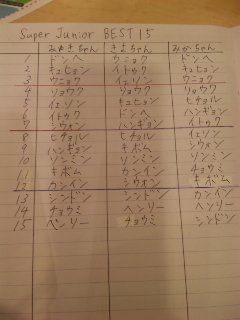 Super Junior BEST 15
みゆきちゃん きよちゃん みかちゃん
1 ドンヘ ウニョク ドンヘ
2 キュヒョン イトゥク キュヒョン
3 ウニョク イェソン ウニョク
4 リョウク リョウク リョウク
5 イェソン キュヒョン ヒチョル
6 イトゥク ドンヘ ハンギョン
7 シウォン ハンギョン イトゥク
8 ヒチョル ヒチョル イェソン
9 ハンギョン キボム シウォン
10 ソンミン ソンミン ソンミン
11 キボム カンイン チョウミ
12 カンイン シウォン キボム
13 シンドン シンドン カンイン
14 チョウミ ヘンリー ヘンリー
15 ヘンリー チョウミ シンドン